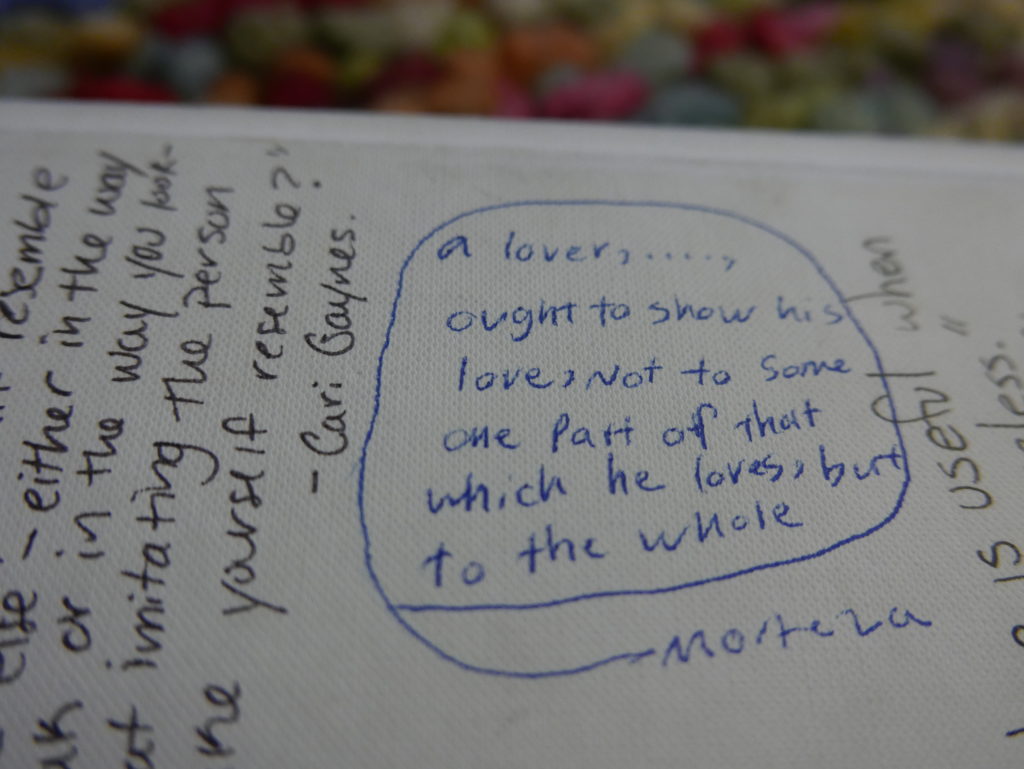 a lover, .....,
ought to show his
love, Not to some
one part of that
which he loves, but
to the whole
- Morteza
resemble
else - either in the way
or in the way you look.
imitating the person
yourself resemble?"
- Cari Gaynes.
useful when
is